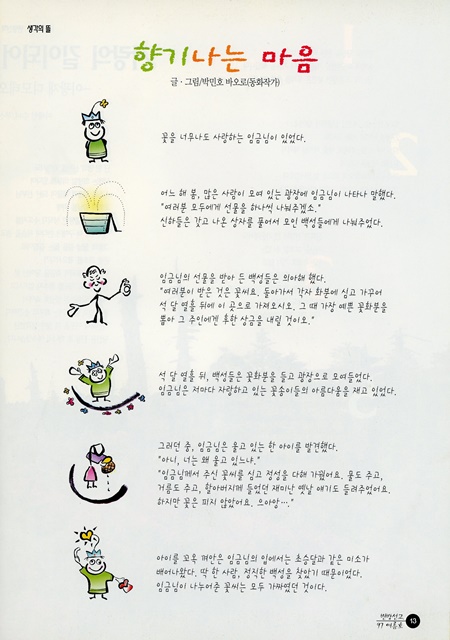 생각의 뜰
향기나는 마음
글·그림/박민호 바오로(동화작가)
꽃을 너무나도 사랑하는 임금님이 있었다.
어느 해 봄, 많은 사람이 모여 있는 광장에 임금님이 나타나 말했다.
"여러분 모두에게 선물을 하나씩 나눠주겠소."
신하들은 갖고 나온 상자를 풀어서 모인 백성들에게 나눠주었다.
임금님의 선물을 받아 든 백성들은 의아해 했다.
"여러분이 받은 것은 꽃씨요. 돌아가서 각자 화분에 심고 가꾸어
석 달 열흘 뒤에 이 곳으로 가져오시오. 그 때 가장 예쁜 꽃화분을
뽑아 그 주인에게 후한 상금을 내릴 것이오."
석 달 열흘 뒤, 백성들은 꽃화분을 들고 광장으로 모여들었다.
임금님은 저마다 자랑하고 있는 꽃송이들의 아름다움을 재고 있었다.
그러던 중, 임금님은 울고 있는 한 아이를 발견했다.
"아니, 너는 왜 울고 있느냐."
"임금님께서 주신 꽃씨를 심고 정성을 다해 가꿨어요. 물도 주고,
거름도 주고, 할아버지께 들었던 재미난 옛날 얘기도 들려주었어요.
하지만 꽃은 피지 않았어요. 으아앙…."
아이를 꼬옥 껴안은 임금님의 입에서는 초승달과 같은 미소가
배어나왔다. 딱 한 사람, 정직한 백성을 찾았기 때문이었다.
임금님이 나누어준 꽃씨는 모두 가짜였던 것이다.
97 여름호
13